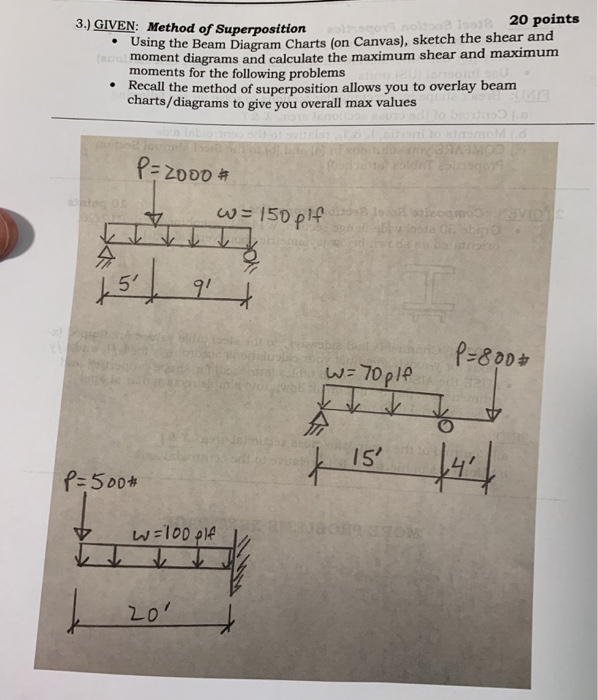 3.) GIVEN: Method of Superposition 20 points
• Using the Beam Diagram Charts (on Canvas), sketch the shear and
moment diagrams and calculate the maximum shear and maximum
moments for the following problems
• Recall the method of superposition allows you to overlay beam
charts/diagrams to give you overall max values
P=2000#
w=150plf
5' 9'
P=800#
w=70plf
15' 4'
P=500#
w=100plf
20'